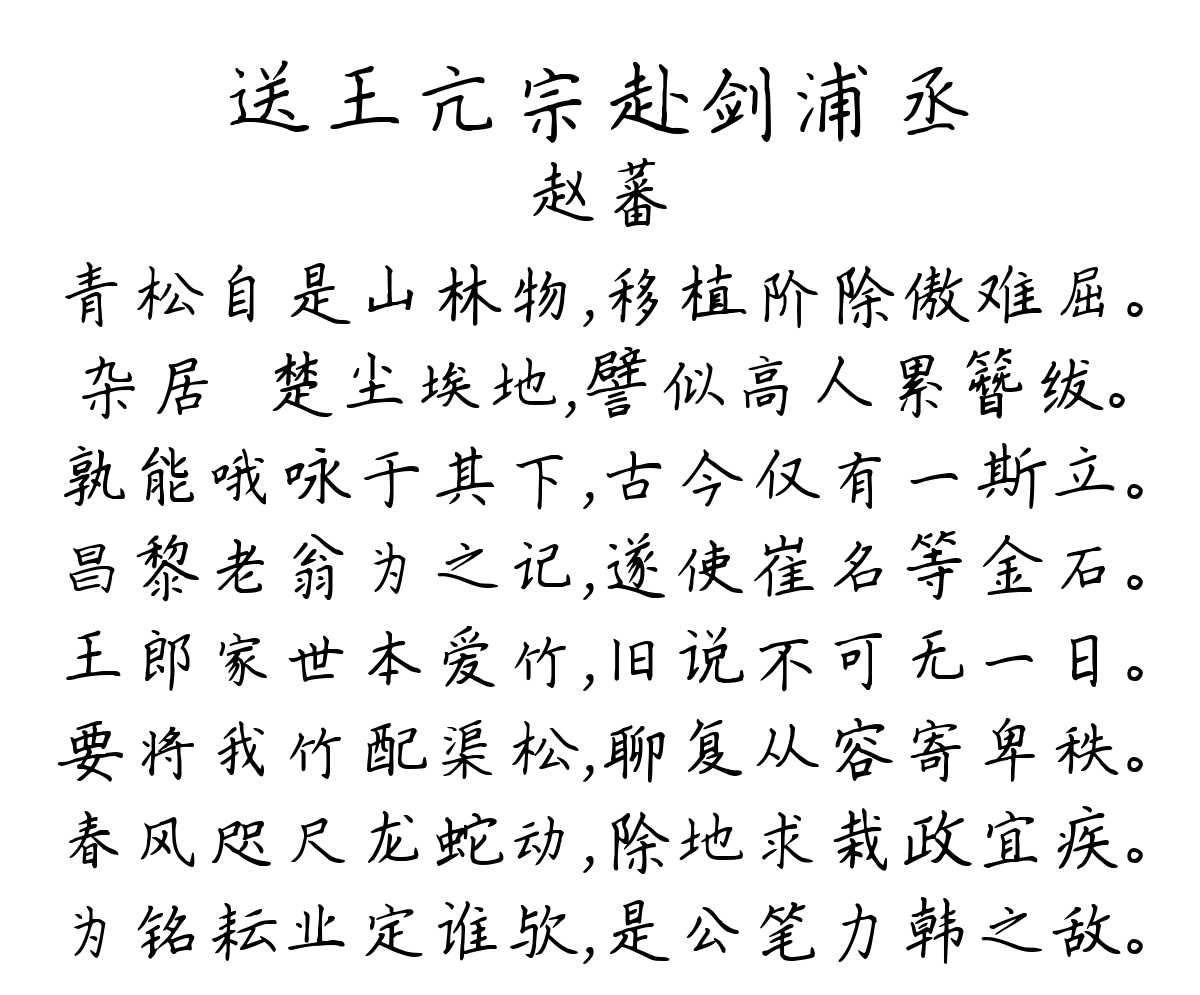 送王亢宗赴剑浦丞
赵蕃
青松自是山林物,移植阶除傲难屈。
杂居 楚尘埃地,譬似高人累簪绂。
孰能哦咏于其下,古今仅有一斯立。
昌黎老翁为之记,遂使崔名等金石。
王郎家世本爱竹,旧说不可无一日。
要将我竹配渠松,聊复从容寄卑秩。
春风咫尺龙蛇动,除地求栽政宜疾。
为铭耘业定谁欤,是公笔力韩之敌。